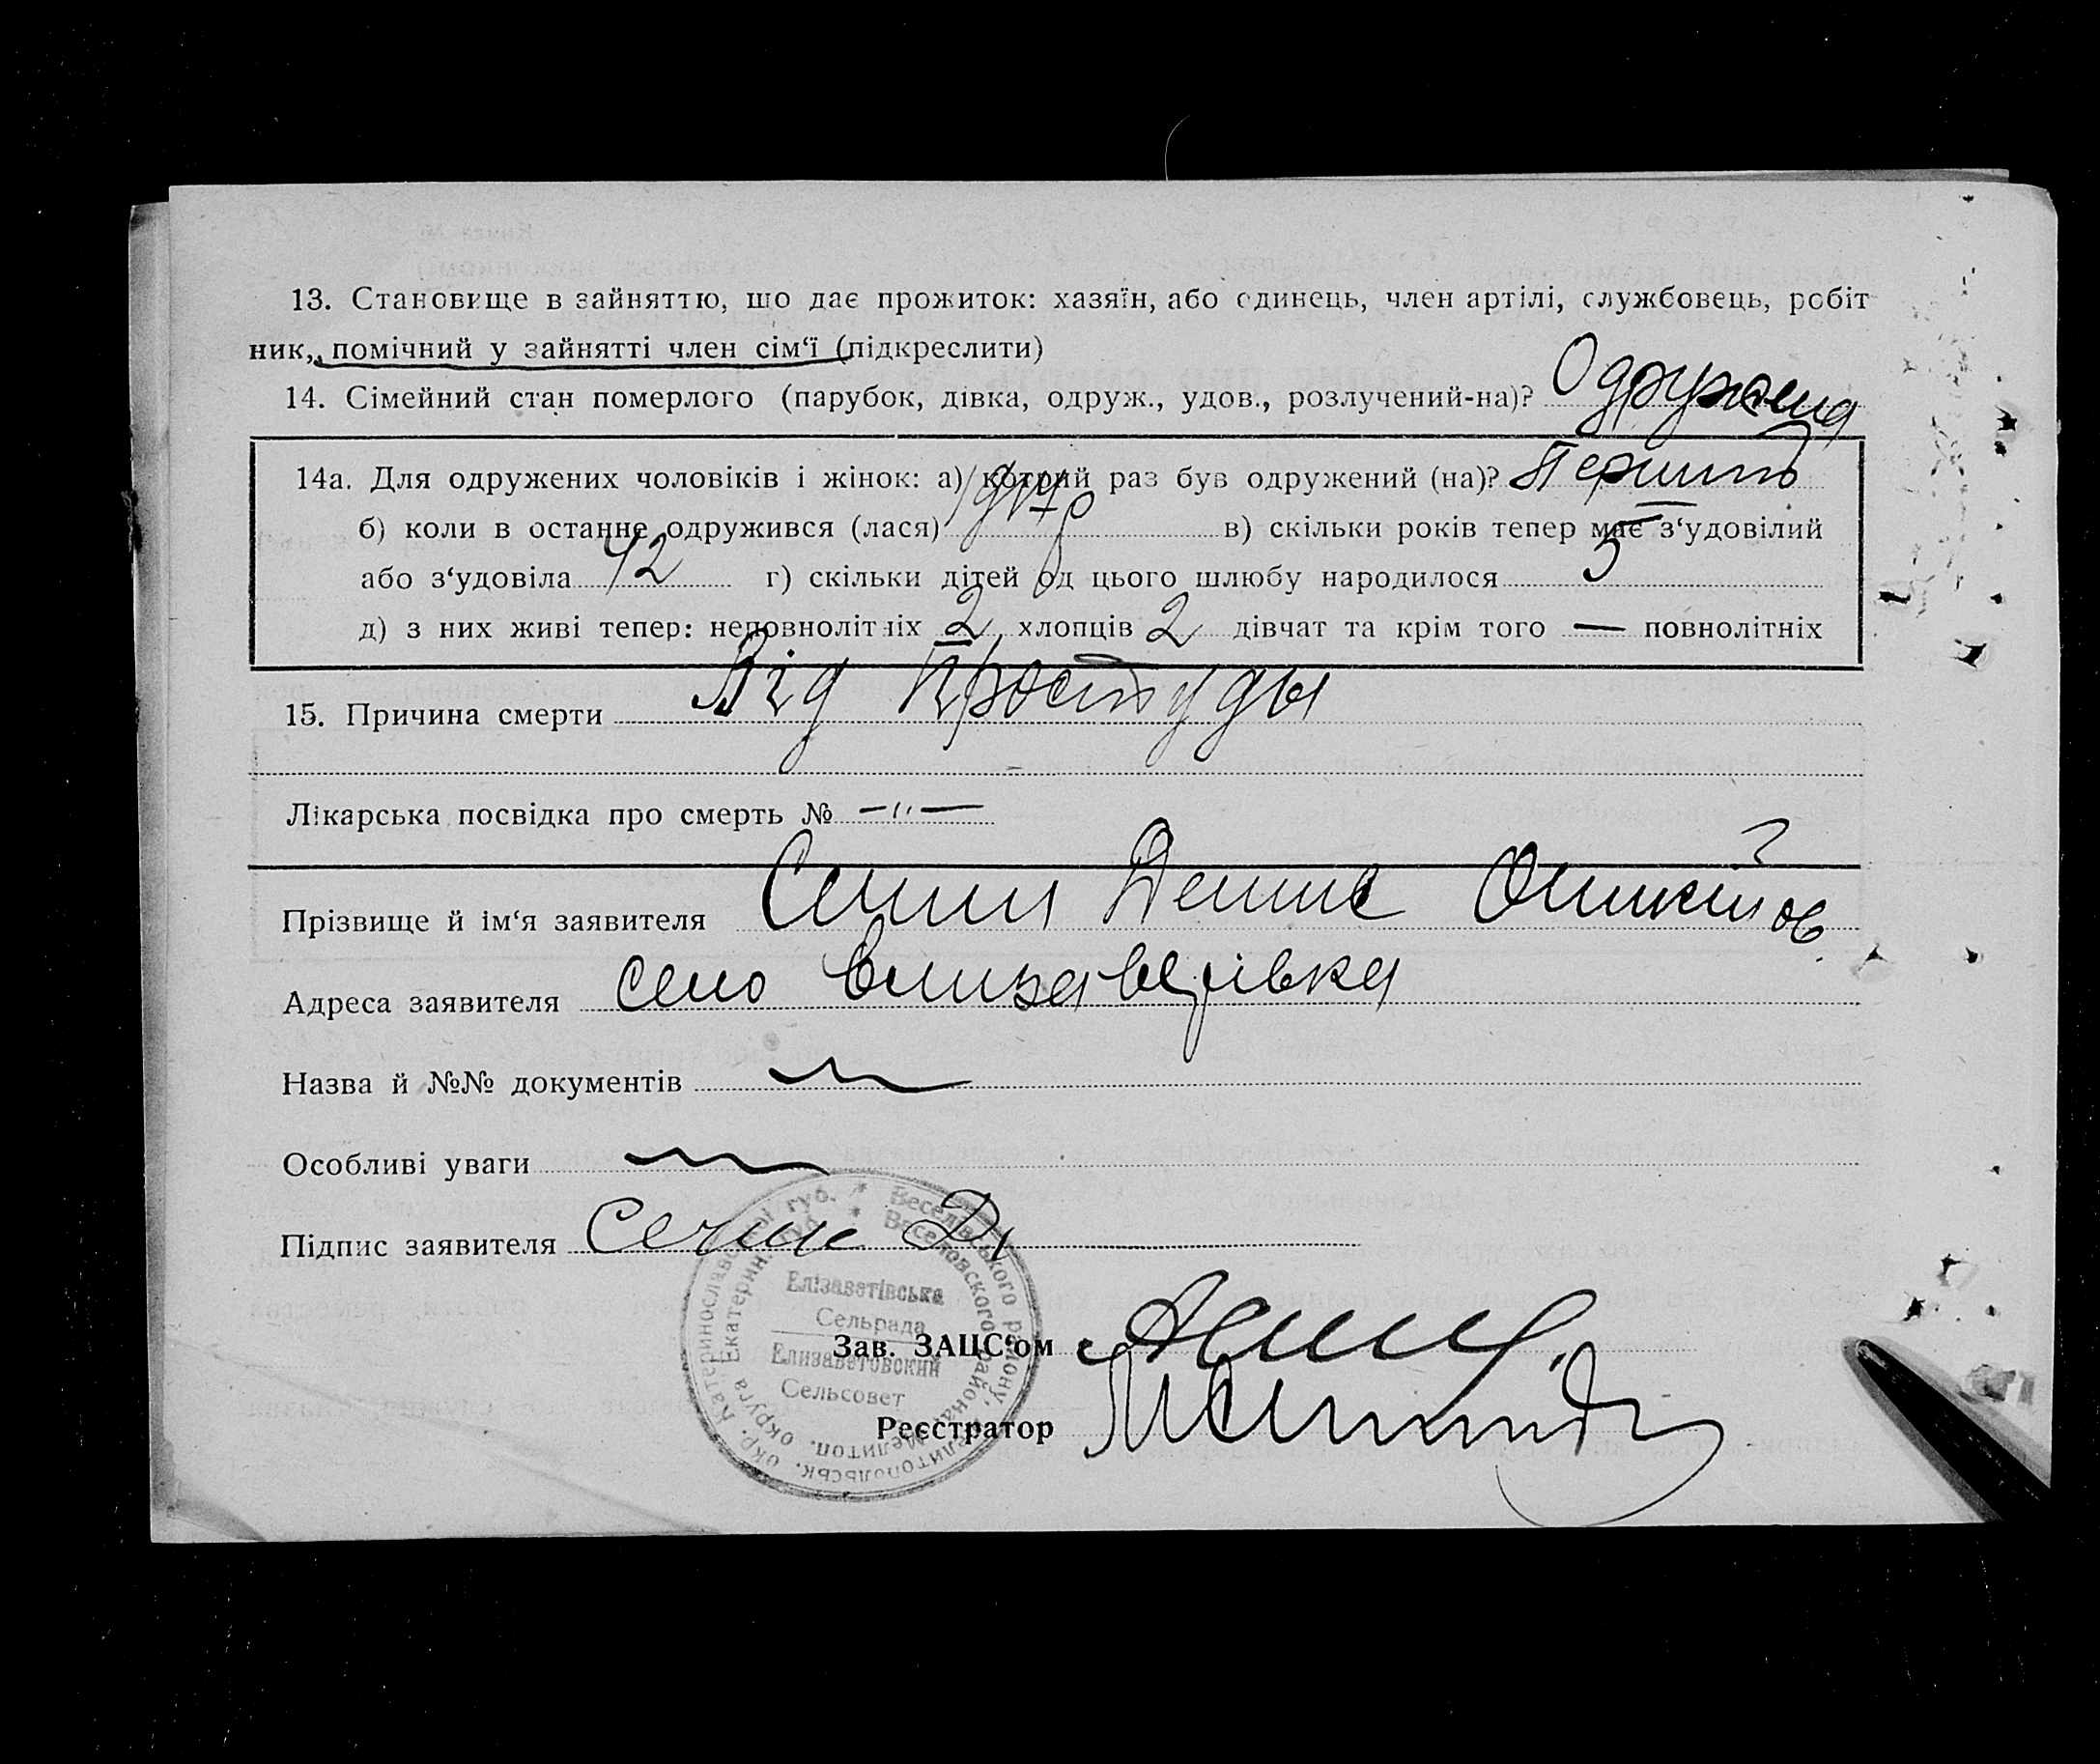 13. Становище в зайняттю, що дає прожиток: хазяїн, або одинець, член артілі, службовець, робіт
ник, помічний у зайнятті член сім‘ї (підкреслити)
14. Сімейний стан померлого (парубок, дівка, одруж., удов., розлучений-на)? Одружена
14а. Для одружених чоловіків і жінок: а) котрий раз був одружений (на)?
б) коли в останне одружився (лася) в) скільки років тепер має з‘удовілий
або з‘удовіла 42 г) скільки дітей од цього шлюбу народилося 5
д) з них живі тепер: неповнолітніх 2 хлопців 2 дівчат та крім того — повнолітніх
15. Причина смерти Від простуды
Лікарська посвідка про смерть № —"—
Прізвище й ім‘я заявителя Денис
Адреса заявителя село Елизаветівка
Назва й №№ документів
Особливі уваги
Підпис заявителя
Катеринославської губ. * Веселівського району, Мелитопольськ. окр.
Екатерин. губ. * Веселовского района Мелитоп. округа
Елізаветівська
Сельрада
Елизаветовский
Сельсовет
Зав. ЗАЦС‘ом
Реєстратор